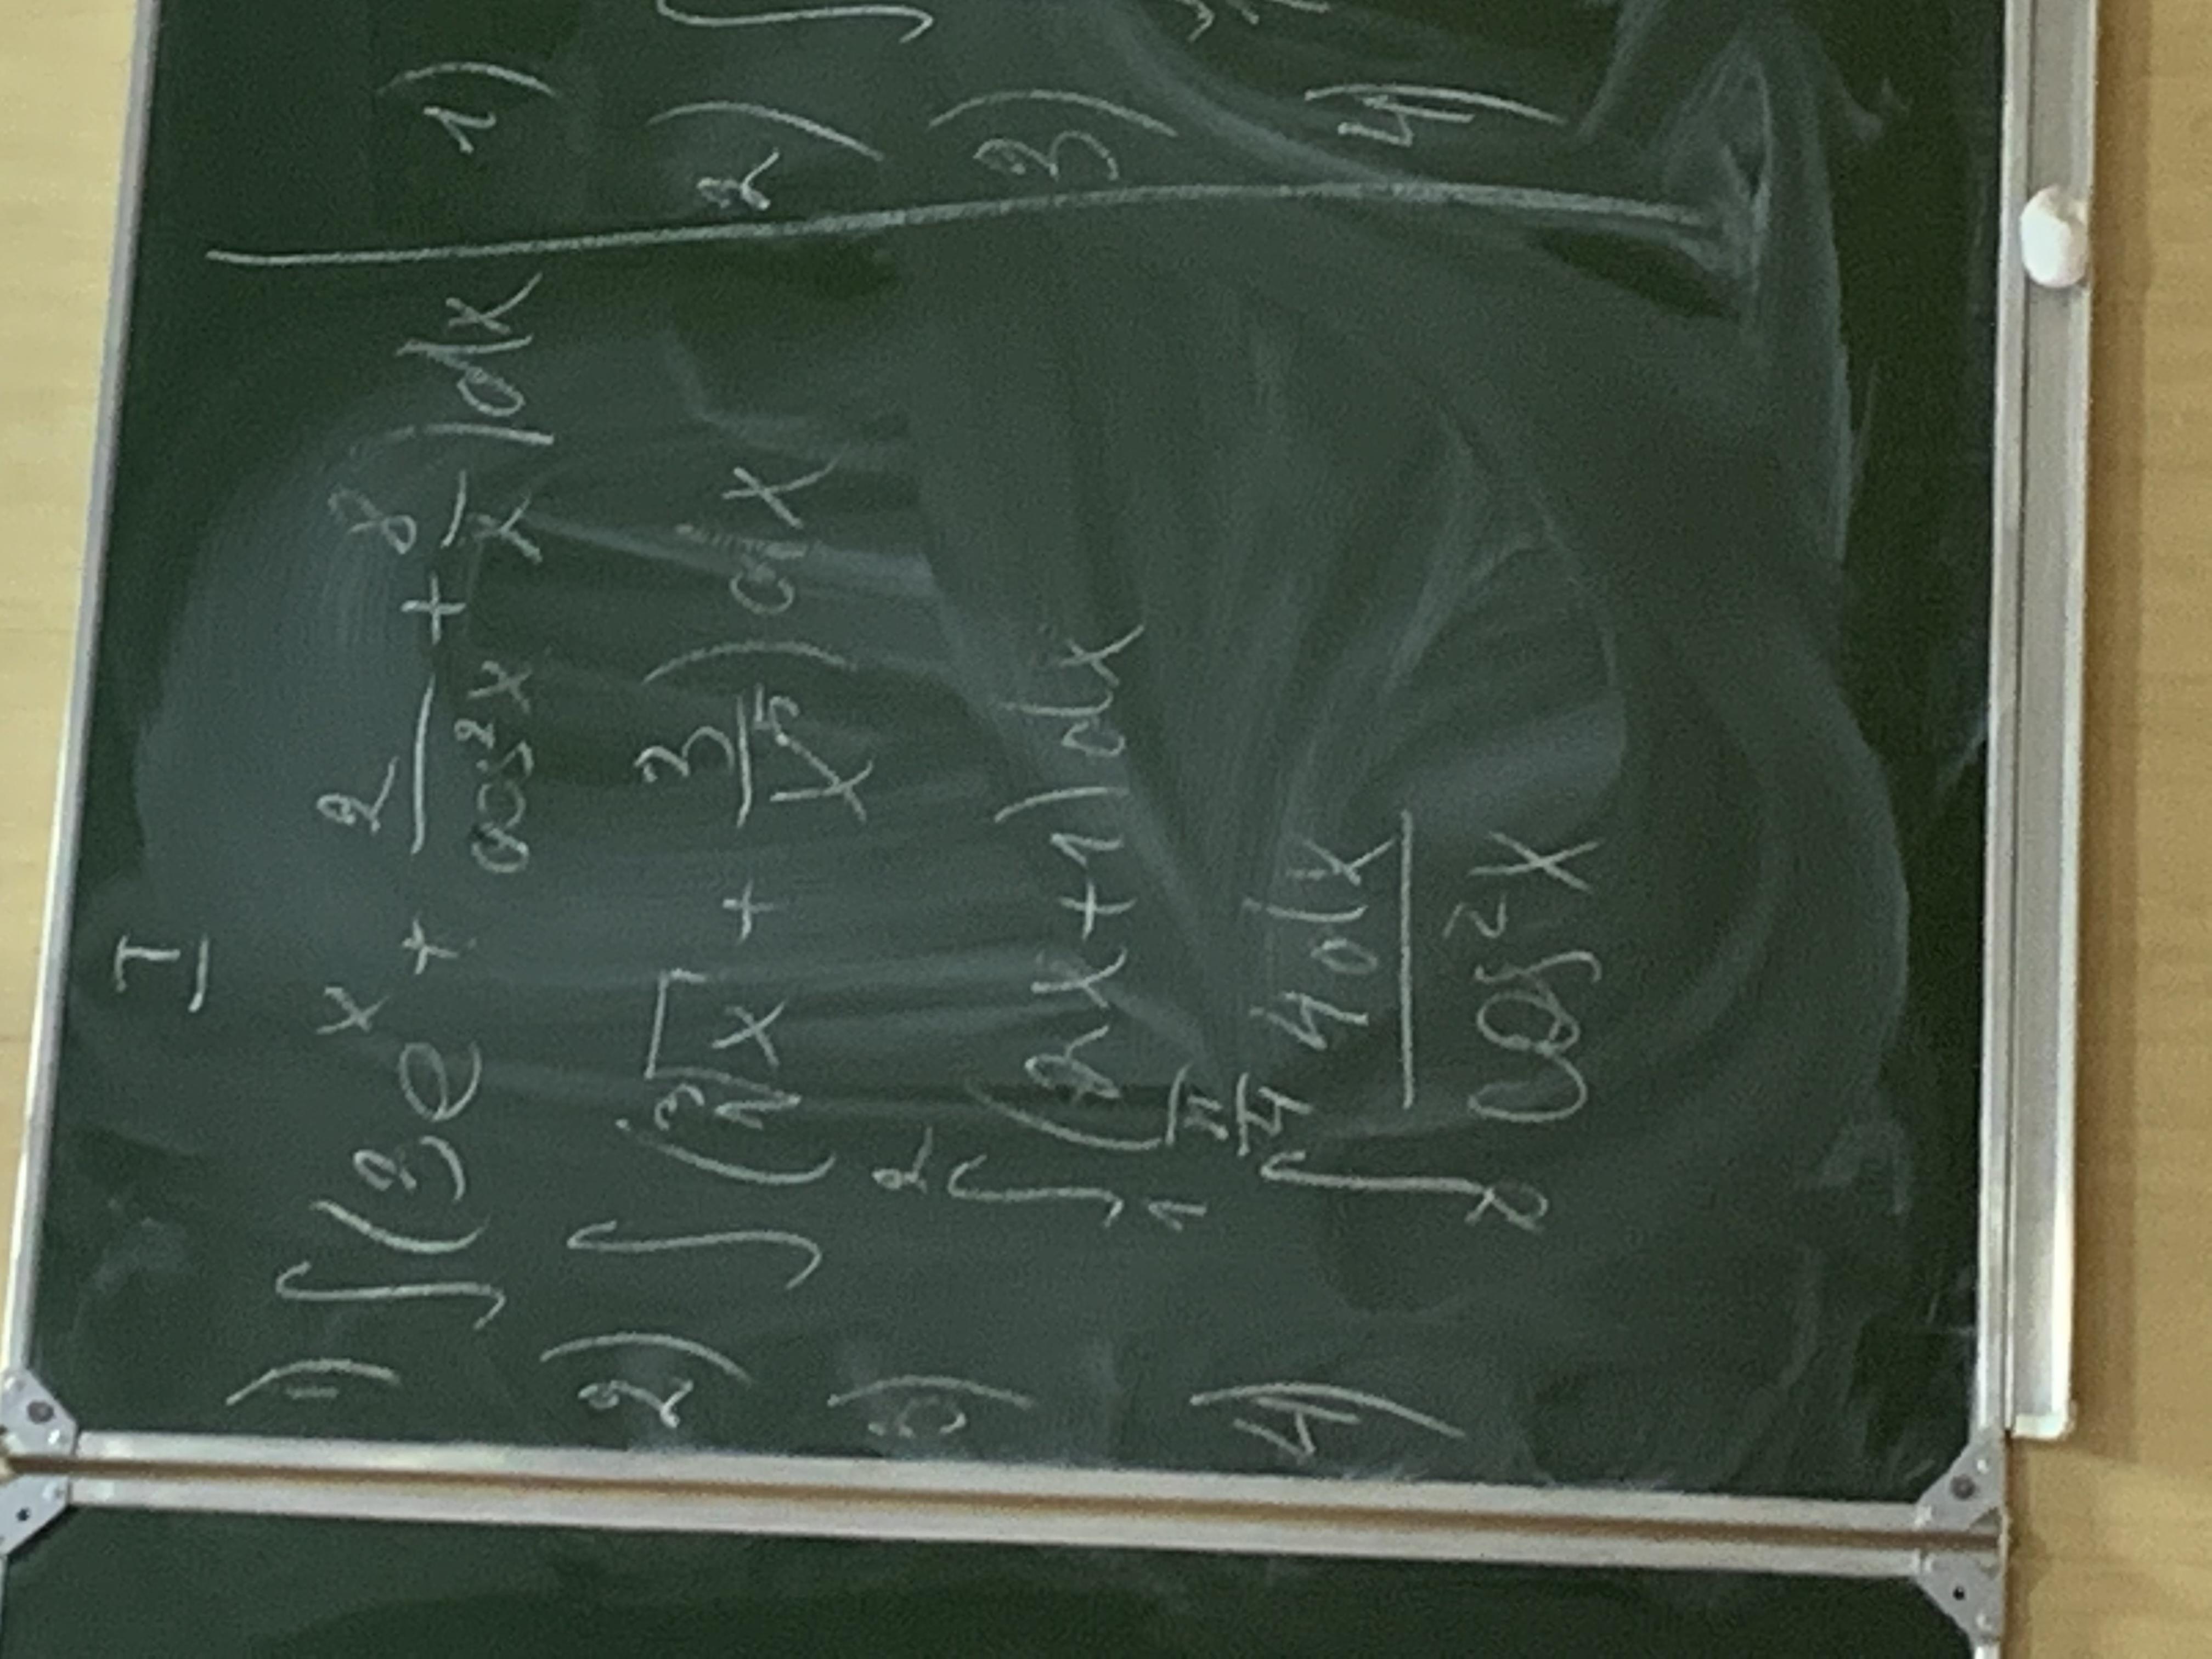 I
1) ∫(3e^x + 2/cos²x + 8/x)dx
2) ∫(∛x + 3/x⁵)dx
3) ∫₁²(2x+1)dx
4) ∫^(π/4) 4dx/cos²x
1)
2) ∫
3)
4)